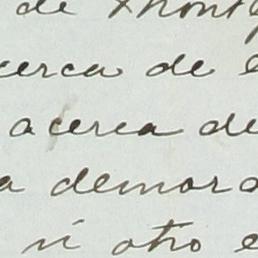 de
cerca de
acerca de
demora
ni otro